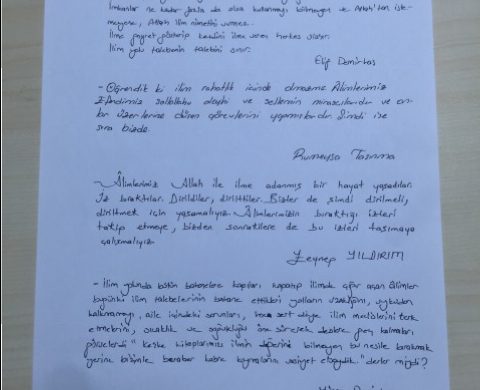 İmkanlar ne kadar fazla da olsa kullanmayı bilmeyen ve Allah'tan iste-
meyene, Allah ilim nimetini vermez.
İlme gayret gösterip kendini ilme veren herkes
İlim yolu talebenin talebini sınar.
Elif Demirtaş
- Öğrendik ki ilim rahatlık içinde olmazmış. Alimlerimiz
Efendimiz sallallahu aleyhi ve sellemin mirasçılarıdır ve on-
lar üzerlerine düşen görevlerini yapmışlardır. Şimdi ise
sıra bizde.
Rumeysa
- Âlimlerimiz Allah ile ilme adanmış bir hayat yaşadılar.
İz bıraktılar. Dirildiler, dirilttiler. Bizler de şimdi dirilmeli,
diriltmek için yaşamalıyız. Âlimlerimizin bıraktığı izleri
takip etmeye, bizden sonrakilere de bu izleri taşımaya
çalışmalıyız.
Zeynep YILDIRIM
- İlim yolunda bütün bahanelere kapıları kapatıp ilimde çığır açan âlimler
bugünkü ilim talebelerinin bahane ettikleri yolların uzaklığını, uykudan
kalkmamayı, aile içindeki sorunları, hoca sert diye ilim meclislerini terk
etmelerini, sıcaklık ve soğukluğu öne sürerek derslere geç kalmaları
görselerdi "keşke kitaplarımızı ilmin değerini bilmeyen bu nesile bırakmak
yerine bizimle beraber kabre koymalarını vasiyet etseydik." derler miydi?